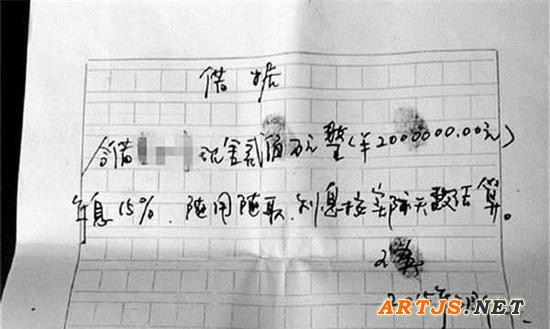 借据
今借 现金贰佰万元整(¥2000000.00元)
年息15%.随用随取.利息按实际天数结算。
15年
ARTJS.NET